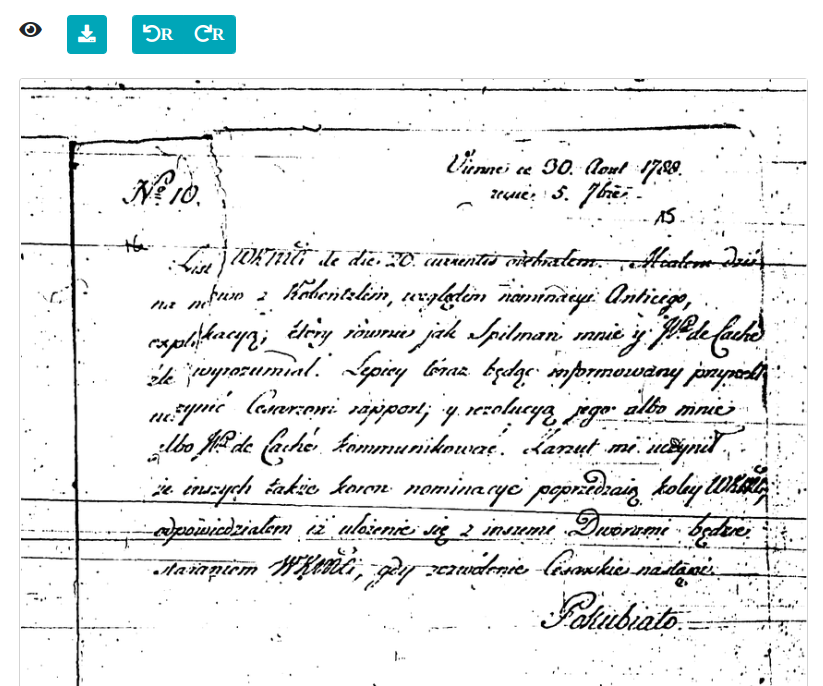 R R
Vienne ce 30. Aout 1788.
No 10.
reçue 5. 7bre
15
16
List WKMći de die 20. currentis odebrałem. Miałem dziś
na nowo z Kobentzlem, względem nominacyi Anticego,
explikacyą; który równie jak Spilman mnie y Mr. de Caché
źle wyrozumiał. Lepiey teraz będąc informowany przyrzekł
uczynić Cesarzowi rapport, y rezolucyą jego albo mnie
albo Mr. de Caché kommunikować. Zarzut mi uczynił
że inszych także koron nominacye poprzedzaią koley WKMći,
odpowiedziałem iż ułożenie się z inszemi Dworami będzie
staraniem WKMći, gdy zezwolenie Cesarskie nastąpi.